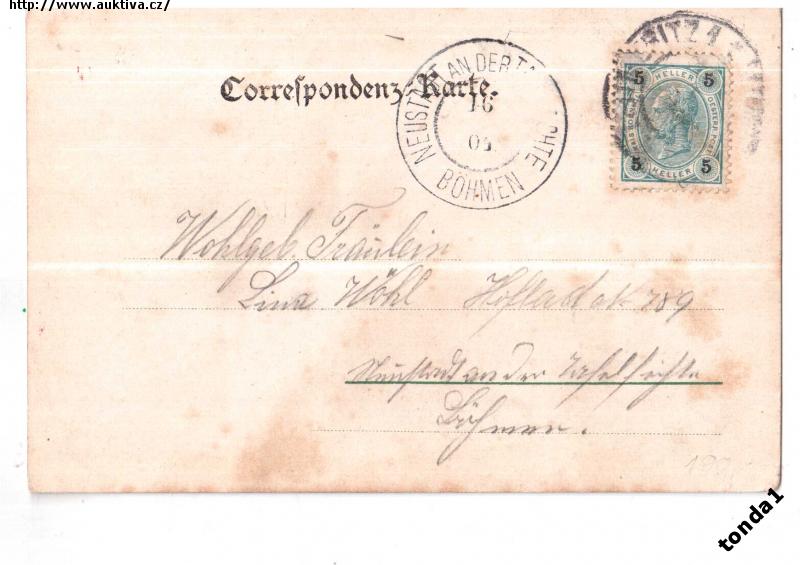 http://www.auktiva.cz/
Correspondenz-Karte.
NEUSTADT AN DER TA CHTE
16
04
BÖHMEN
ITZ 1
5 HELLER 5
5 HELLER 5
Wohlgeb. Fräulein
Lina Wöhl 789
Neustadt an der Tafelfichte
Böhmen.
tonda1